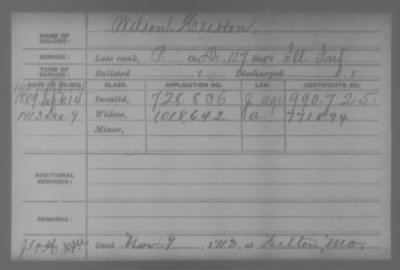 NAME OF SOLDIER: Wilson
SERVICE: Late rank, P Co D, 117 Reg't Ill. Inf.
TERM OF SERVICE: Enlisted , 1 Discharged , 1
DATE OF FILING. CLASS. APPLICATION NO. LAW. CERTIFICATE NO.
Sept 14 Invalid, 728.836 990.725.
1913 Dec 9 Widow, 1,018,642 771894
Minor,
ADDITIONAL SERVICES:
REMARKS:
Died Nov. 9, 1913, at Fulton, Mo.